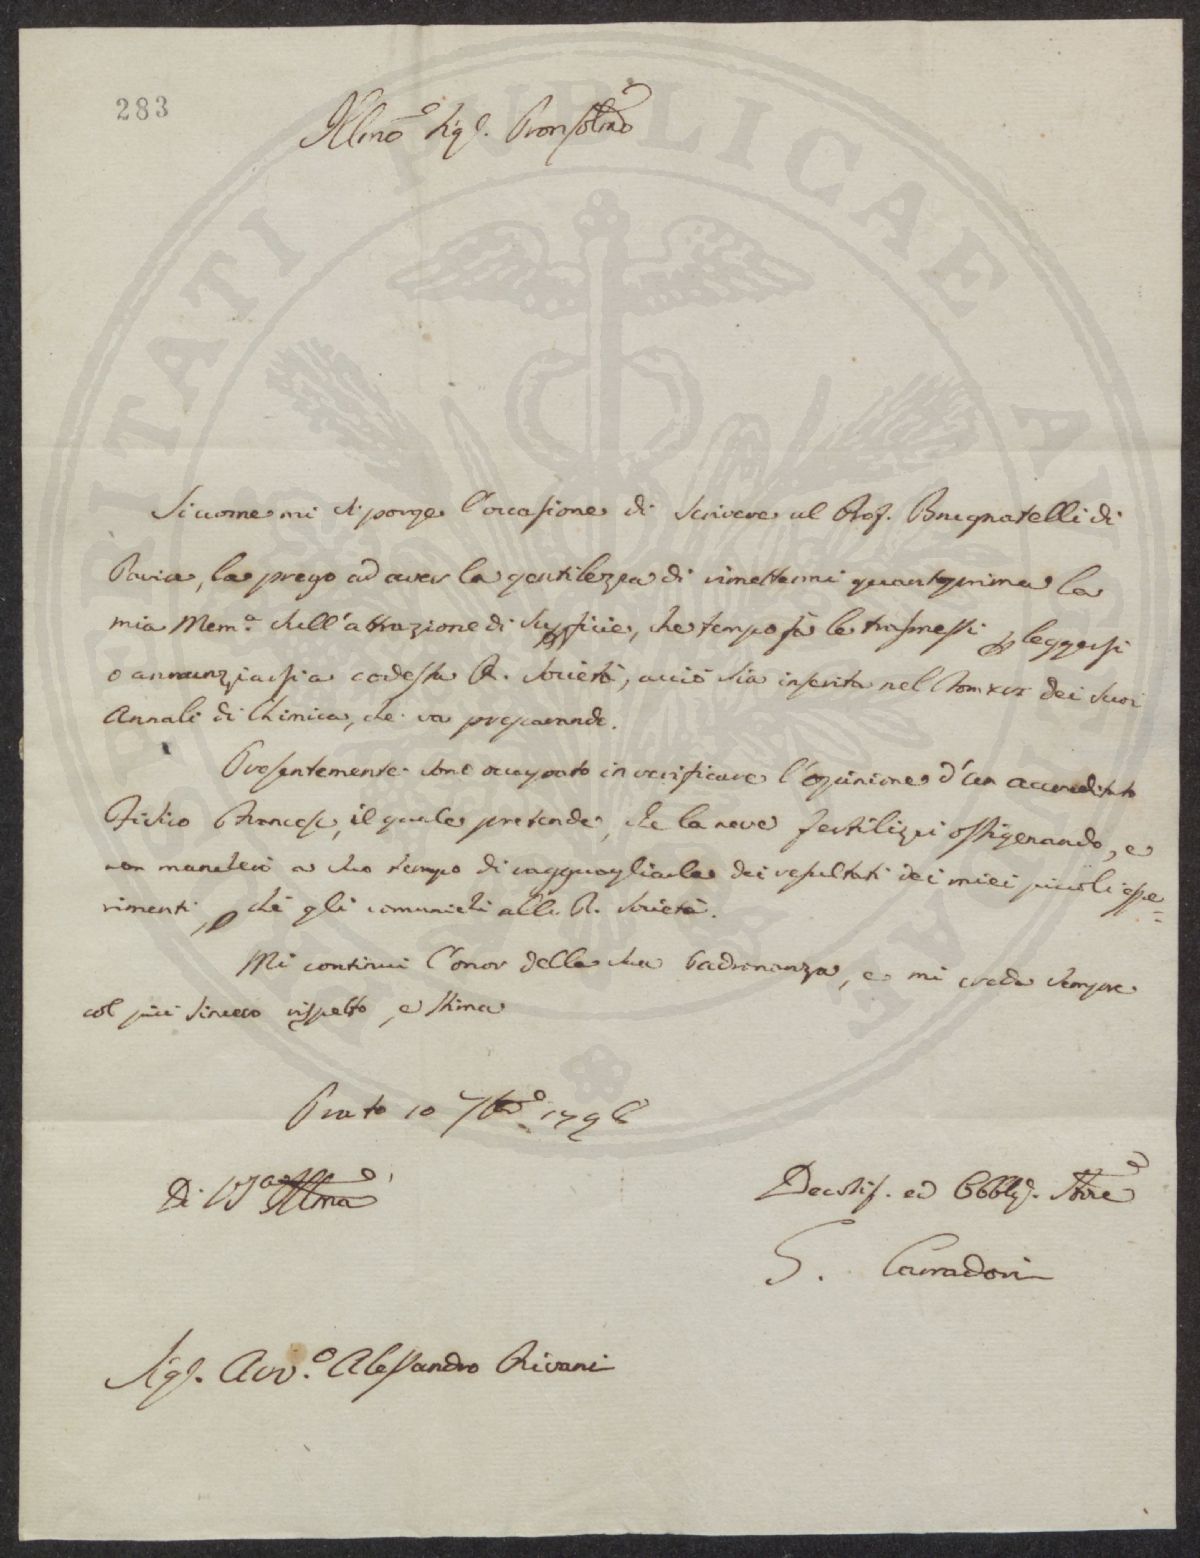 283
Illmo Sig.
Siccome mi si porge l'occasione di scrivere al Prof. Brugnatelli di
Pavia, la prego ad aver la gentilezza di rimettermi quantoprima la
mia Mem.a sull'attrazione di superficie, che tempo fà le trasmessi p leggersi
o annunziarsi a codesta R. Società, acciò sia inserita nel Tom dei suoi
Annali di Chimica, che va preparando.
Presentemente sono occupato in verificare l'opinione d'un accreditato
Fisico Francese, il quale pretende, che la neve fertilizzi ossigenando, e
non mancherò a suo tempo di ragguagliarla dei resultati dei miei piccoli espe=
rimenti, chè gli comunichi alla R. Società.
Mi continui l'onor della sua Padronanza, e mi creda sempre
col più sincero rispetto, e stima
Prato 10 7bre 1796
Di VS Illma
Devotis. ed Obblig. Sre
G. Carradori
Sig. Avv.o Alessandro Rivani
PUBLICAE